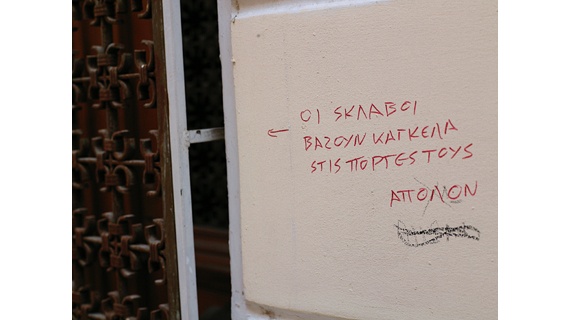 ← ΟΙ SΚΛΑΒΟΙ
ΒΑΖΟΥΝ ΚΑΓΚΕΛΑ
SΤΙS ΠΟΡΤΕS ΤΟΥS
ΑΠΟΛΟΝ